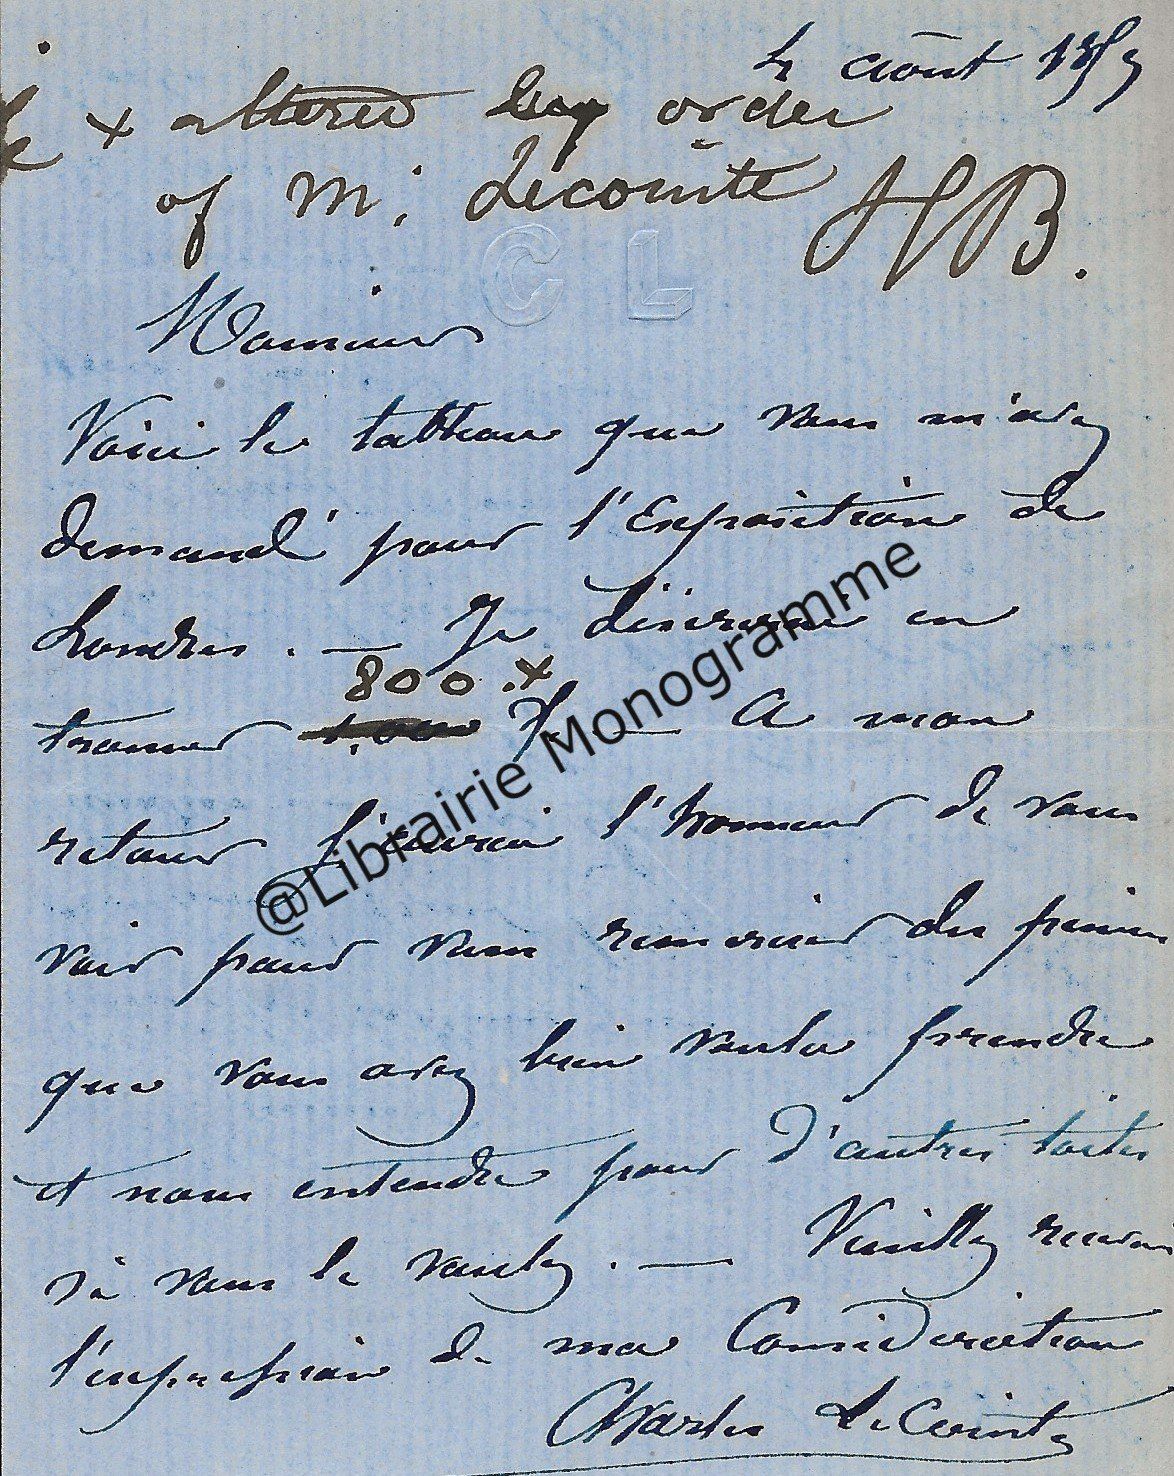 4 août 185
x altered by order
of Mr Lecointe HB.
C L
Monsieur
Voici le tableau que vous m'avez
demandé pour l'Exposition de
Londres. — Je désirerai en
800 . x
trouver 1.000 f — A mon
retour j'aurai l'honneur de vous
voir pour vous remercier des peines
que vous avez bien voulu prendre
et nous entendre pour d'autres toiles
si vous le voulez. — Veuillez recevoir
l'expression de ma Considération
Charles Le Cointe
@Librairie Monogramme